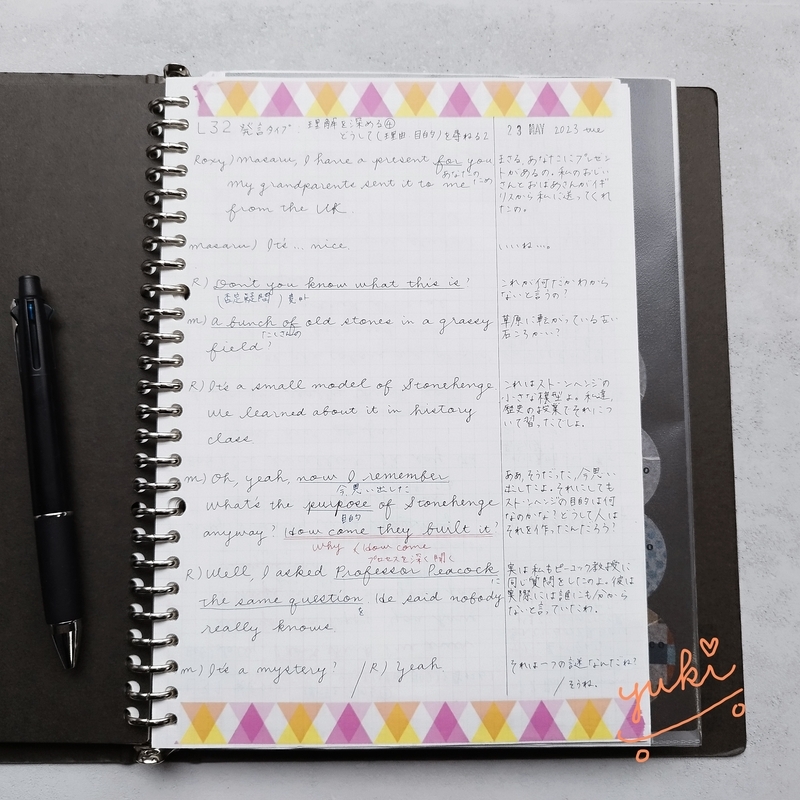 L32 発言タイプ. 理解を深める④
どうして(理由・目的)を尋ねる2
23 MAY 2023 tue
Roxy) Masaru, I have a present for you
あなたの
ため
my grandparents sent it to me
from the UK.
まさる、あなたにプレゼン
トがあるの。私のおじい
さんとおばあさんがイギ
リスから私に送ってくれ
たの。
masaru) It's... nice.
いいね…。
R) Don't you know what this is?
(否定疑問) 意外
これが何だかわから
ないと言うの?
m) a bunch of old stones in a grassy
たくさんの
field?
草原に転がっている古い
石ころかい?
R) It's a small model of Stonehenge
We learned about it in history
class
これはストーンヘンジの
小さな模型よ。私達、
歴史の授業でそれにつ
いて習ったでしょ。
m) Oh, yeah, now I remember
今思い出した
What's the purpose of Stonehenge
目的
anyway? How come they built it?
Why < How come
プロセスを深く聞く
ああ、そうだった、今思い
出したよ。それにしても
ストーンヘンジの目的は何
なのかな?どうして人は
それを作ったんだろう?
R) Well, I asked Professor Peacock
に
the same question. He said nobody
を
really knows.
実は私もピーコック教授に
同じ質問をしたのよ。彼は
実際には誰にも分から
ないと言っていたわ。
m) It's a mystery? / R) Yeah
それは一つの謎なんだね?
/そうね。
yuki